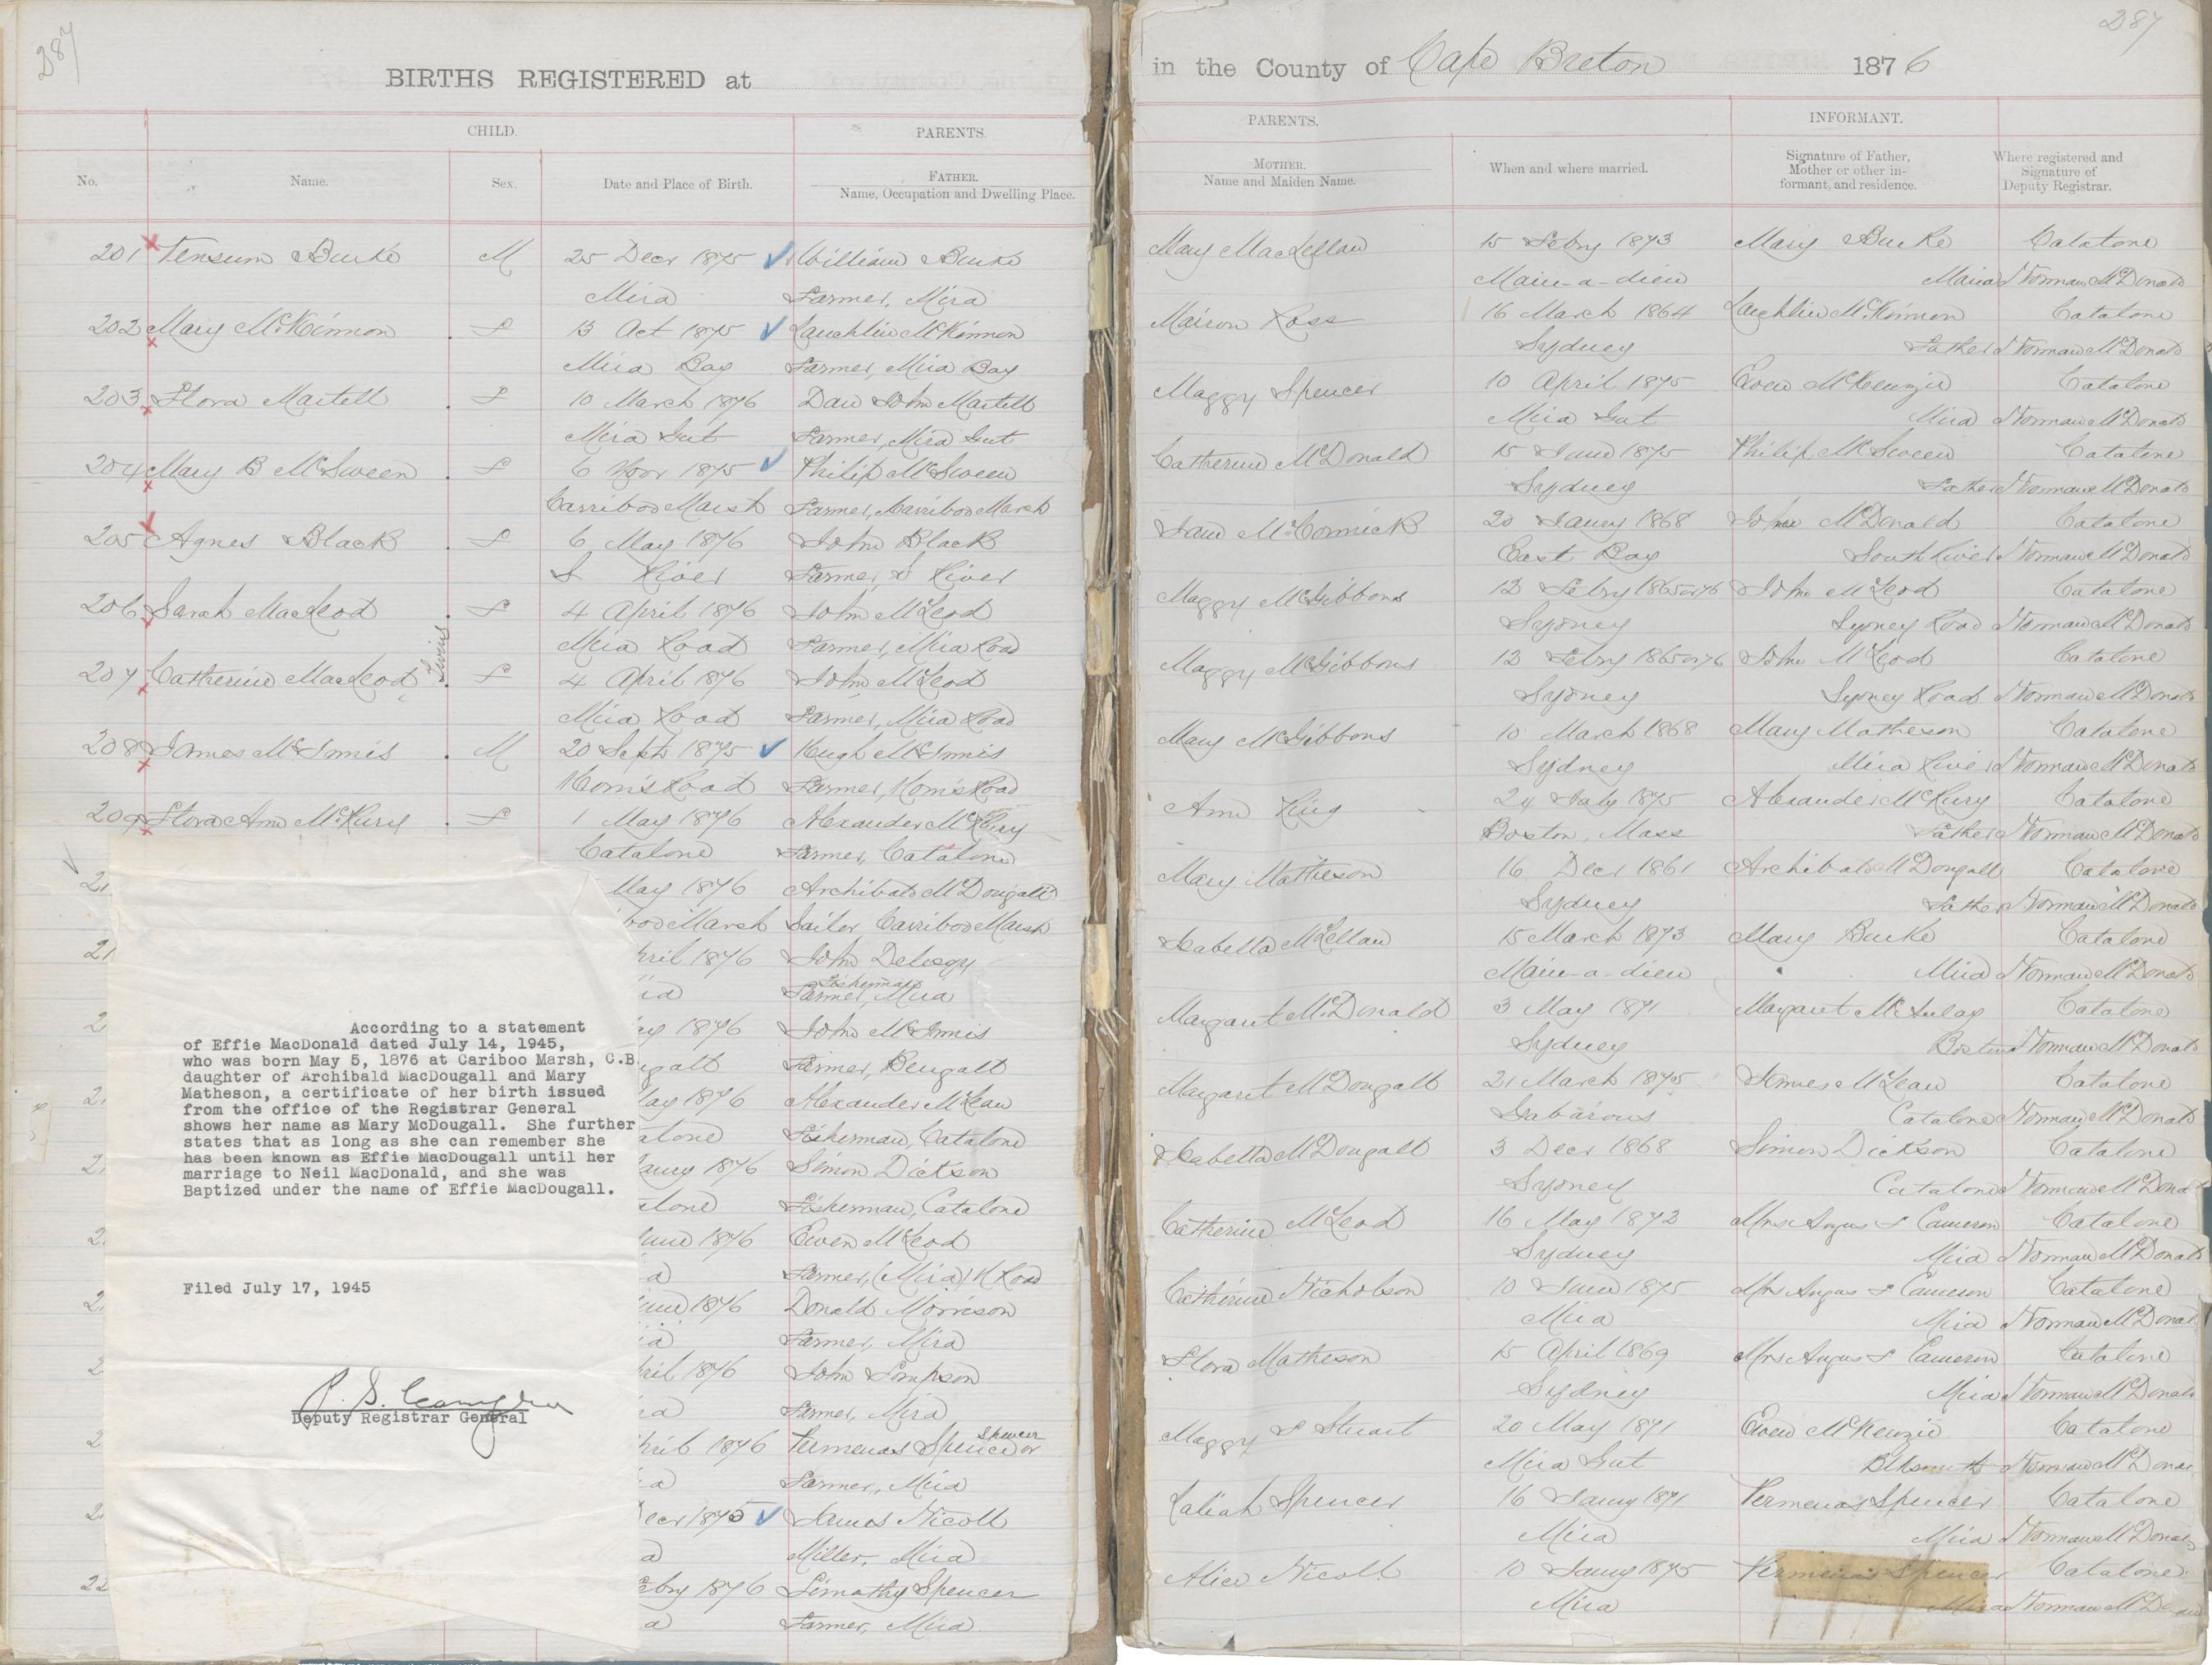 287
BIRTHS REGISTERED at
CHILD.
PARENTS.
No.
Name.
Sex.
Date and Place of Birth.
FATHER.
Name, Occupation and Dwelling Place.
201 Burke M 25 Decr 1875 William Burke
Mira Farmer, Mira
202 Mary McKinnon F 13 Oct 1875 Lauchlin McKinnon
Mira Bay Farmer, Mira Bay
203 Flora Martell F 10 March 1876 Dan John Martell
Mira Gut Farmer, Mira Gut
204 Mary B McSween F 6 Novr 1875 Philip McSween
Carriboo Marsh Farmer, Carriboo Marsh
205 Agnes Black F 6 May 1876 John Black
S River Farmer, S River
206 Sarah MacLeod F 4 April 1876 John McLeod
Twins
Mira Road Farmer, Mira Road
207 Catherine MacLeod F 4 April 1876 John McLeod
Mira Road Farmer, Mira Road
208 James McInnis M 20 Sept 1875 Hugh McInnis
Road Farmer, Road
209 Flora Ann McKury F 1 May 1876 Alexander
Catalone Farmer, Catalone
21 May 1876 Archibald McDougall
boo Marsh Sailer Carriboo Marsh
21 pril 1876 John
Fisherman
ia Farmer, Mira
2 ay 1876 John McInnis
ngall Farmer, Bengall
2 May 1876 Alexander McLean
alone Fisherman, Catalone
21 Jany 1876 Simon Dickson
alone Fisherman, Catalone
2 June 1876 Ewen McLeod
a Farmer, (Mira) Road
2 June 1876 Donald Morrison
ia Farmer, Mira
2 pril 1876 John Simpson
ia Farmer, Mira
Spencer
2 pril 1876 Permenas Spencer or
a Farmer, Mira
2 Decr 1875 James Nicoll
a Miller, Mira
22 ebry 1876 Timothy Spencer
a Farmer, Mira
According to a statement
of Effie MacDonald dated July 14, 1945,
who was born May 5, 1876 at Cariboo Marsh, C.B.
daughter of Archibald MacDougall and Mary
Matheson, a certificate of her birth issued
from the office of the Registrar General
shows her name as Mary McDougall. She further
states that as long as she can remember she
has been known as Effie MacDougall until her
marriage to Neil MacDonald, and she was
Baptized under the name of Effie MacDougall.
Filed July 17, 1945
Deputy Registrar General
287
in the County of Cape Breton 1876
PARENTS.
INFORMANT.
MOTHER.
Name and Maiden Name.
When and where married.
Signature of Father,
Mother or other in-
formant, and residence.
Where registered and
Signature of
Deputy Registrar.
Mary MacLellan 15 Febry 1873 Mary Burke Catalone
Main-a-dieu Norman McDonald
Ross 16 March 1864 Lauchlin McKinnon Catalone
Sydney Father Norman McDonald
Maggy Spencer 10 April 1875 Ewen McKenzie Catalone
Mira Gut Mira Norman McDonald
Catherine McDonald 15 June 1875 Philip McSween Catalone
Sydney Father Norman McDonald
Jane McCormick 20 Jany 1868 John McDonald Catalone
East Bay South River Norman McDonald
Maggy McGibbons 13 Febry 1865 or 76 John McLeod Catalone
Sydney Sydney Road Norman McDonald
Maggy McGibbons 13 Febry 1865 or 76 John McLeod Catalone
Sydney Sydney Road Norman McDonald
Mary McGibbons 10 March 1868 Mary Matheson Catalone
Sydney Mira River Norman McDonald
Ann King 24 July 1875 Alexander McKury Catalone
Boston, Mass Father Norman McDonald
Mary Matheson 16 Decr 1861 Archibald McDougall Catalone
Sydney Father Norman McDonald
Isabella McLellan 15 March 1873 Mary Burke Catalone
Main-a-dieu Mira Norman McDonald
Margaret McDonald 3 May 1871 Margaret McAulay Catalone
Sydney Boston Norman McDonald
Margaret McDougall 21 March 1875 James McLean Catalone
Gabarous Catalone Norman McDonald
Isabella McDougall 3 Decr 1868 Simon Dickson Catalone
Sydney Catalone Norman McDona
Catherine McLeod 16 May 1872 Mrs Angus F Cameron Catalone
Sydney Mira Norman McDonald
Catherine Nicholson 10 June 1875 Mrs Angus F Cameron Catalone
Mira Mira Norman McDonal
Flora Matheson 15 April 1869 Mrs Angus F Cameron Catalone
Sydney Mira Norman McDonald
Maggy J Stuart 20 May 1871 Ewen McKenzie Catalone
Mira Gut Blksmith Norman McDonal
Spencer 16 Jany 1871 Permenas Spencer Catalone
Mira Mira Norman McDonald
Alice Nicoll 10 Jany 1875 Permenas Spencer Catalone
Mira Mira Norman McDonald